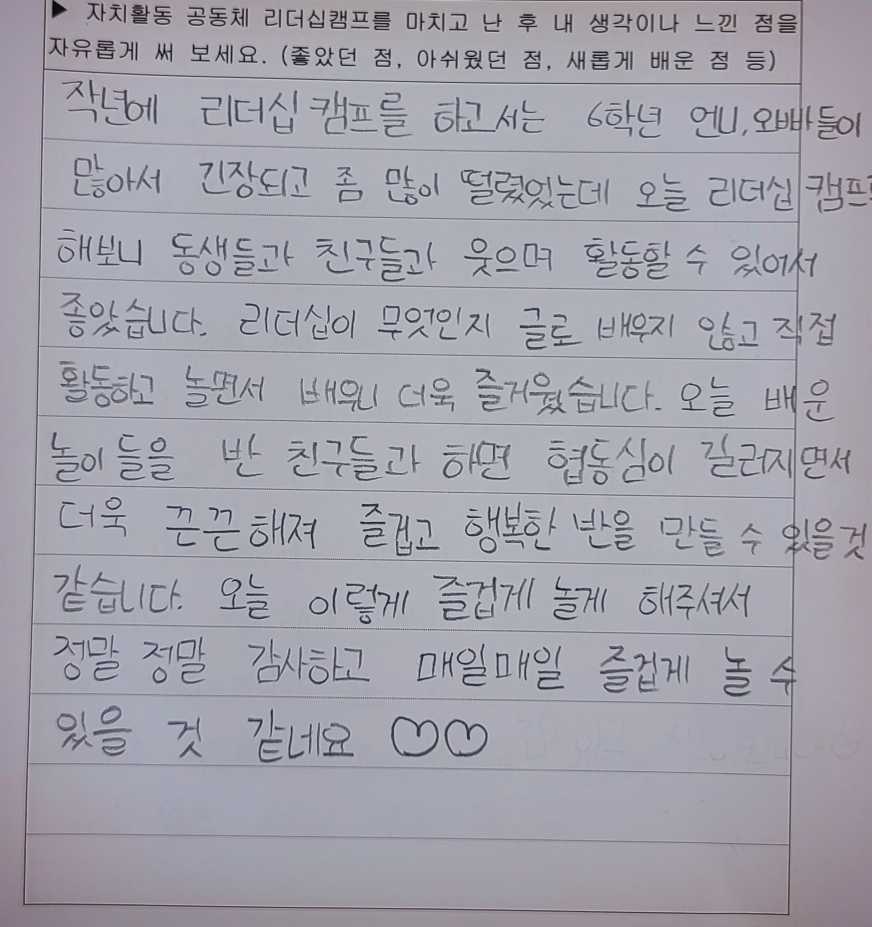 ▶ 자치활동 공동체 리더십캠프를 마치고 난 후 내 생각이나 느낀 점을
자유롭게 써 보세요. (좋았던 점, 아쉬웠던 점, 새롭게 배운 점 등)
작년에 리더십 캠프를 하고서는 6학년 언니, 오빠들이
많아서 긴장되고 좀 많이 떨렸었는데 오늘 리더십 캠프를
해보니 동생들과 친구들과 웃으며 활동할 수 있어서
좋았습니다. 리더십이 무엇인지 글로 배우지 않고 직접
활동하고 놀면서 배우니 더욱 즐거웠습니다. 오늘 배운
놀이 들을 반 친구들과 하면 협동심이 길러지면서
더욱 끈끈해져 즐겁고 행복한 반을 만들 수 있을것
같습니다. 오늘 이렇게 즐겁게 놀게 해주셔서
정말 정말 감사하고 매일매일 즐겁게 놀 수
있을 것 같네요 ♡♡